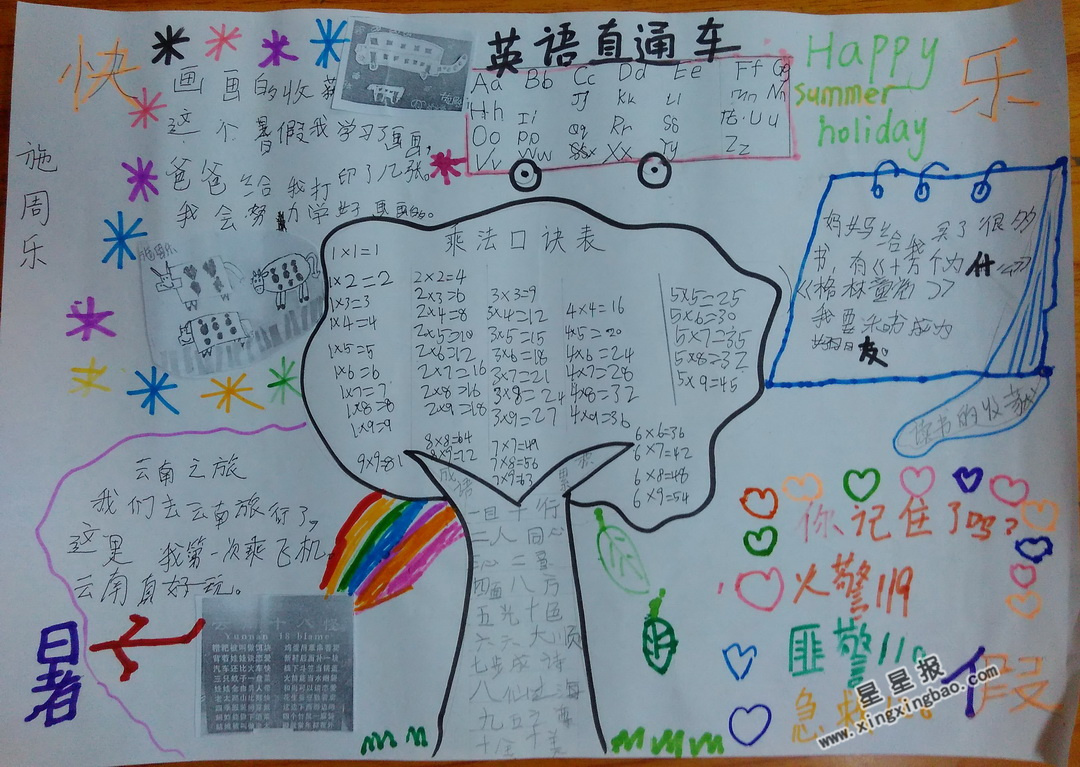 快
乐
施周乐
画画的收获
这个暑假我学习了画画,
爸爸给我打印了几张。
我会努力学好画画的。
英语直通车
Aa Bb Cc Dd Ee Ff Gg
Hh Ii Jj Kk Ll Mm Nn
Oo Pp Qq Rr Ss Uu
Vv Ww Xx Yy Zz
Happy
summer
holiday
妈妈给我买了很多
书,有《十万个为什么》
《格林童话》
我要
友。
读书的收获
乘法口诀表
1×1=1
1×2=2
1×3=3
1×4=4
1×5=5
1×6=6
1×7=7
1×8=8
1×9=9
2×2=4
2×3=6
2×4=8
2×5=10
2×6=12
2×7=16
2×8=16
2×9=18
3×3=9
3×4=12
3×5=15
3×6=18
3×7=21
3×8=24
3×9=27
4×4=16
4×5=20
4×6=24
4×7=28
4×8=32
4×9=36
5×5=25
5×6=30
5×7=35
5×8=32
5×9=45
6×6=36
6×7=42
6×8=48
6×9=54
7×7=49
7×8=56
7×9=63
8×8=64
8×9=72
9×9=81
成语累积
一目十行
二人同心
四面八方
五光十色
六六大顺
七步成诗
八仙过海
九五之尊
十全十美
云南之旅
我们去云南旅行了,
这里 我第一次乘飞机,
云南真好玩。
云南十八怪
Yunnan 18 blame
你记住了吗?
火警119
匪警110
急救120
暑
假
星星报
www.xingxingbao.com